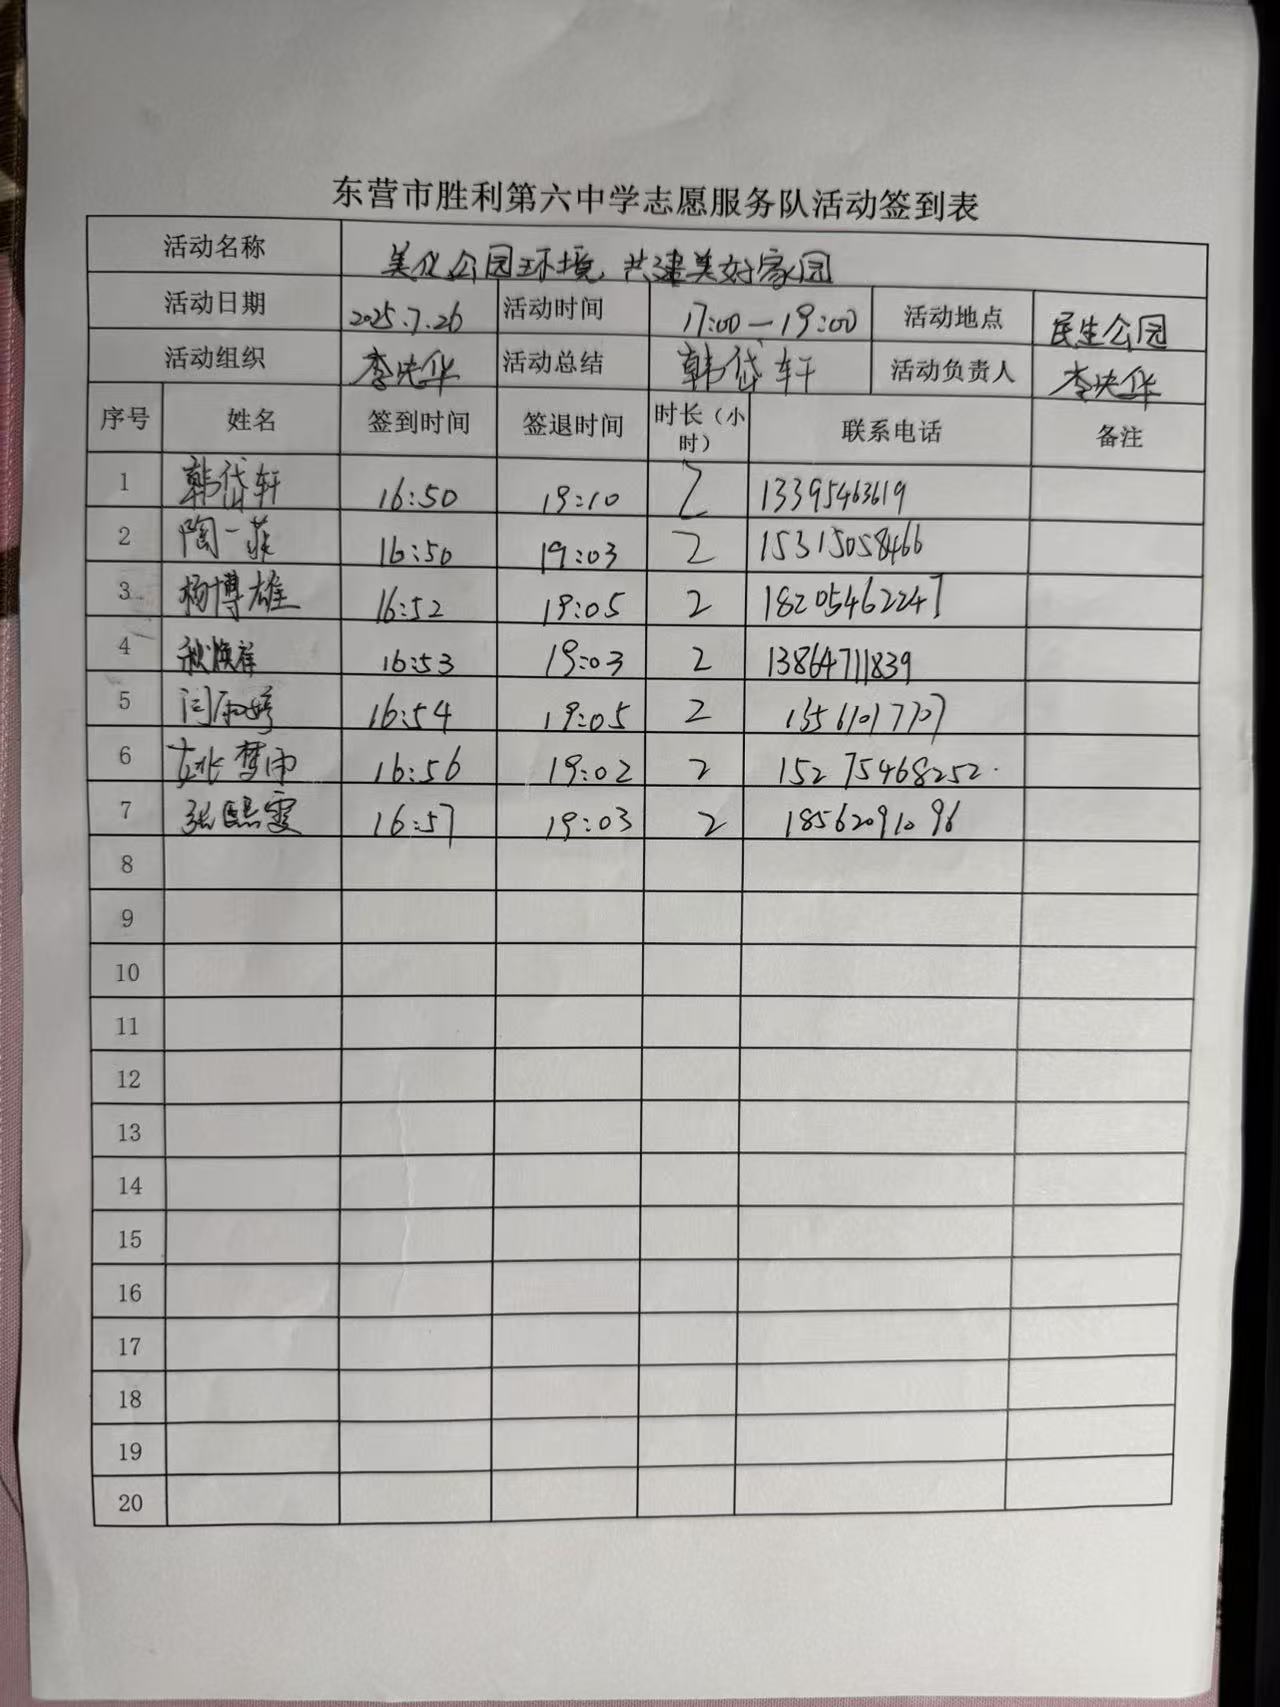 东营市胜利第六中学志愿服务队活动签到表
活动名称 美化公园环境，共建美好家园
活动日期 2025.7.26 活动时间 17:00—19:00 活动地点 民生公园
活动组织 李快华 活动总结 韩岱轩 活动负责人 李快华
序号 姓名 签到时间 签退时间 时长（小时） 联系电话 备注
1 韩岱轩 16:50 19:10 2 13395463619
2 陶一菲 16:50 19:03 2 15315058466
3 杨博雄 16:52 19:05 2 18205462247
4 16:53 19:03 2 13864711839
5 闫雨婷 16:54 19:05 2 13561017707
6 姚梦雨 16:56 19:02 2 15275468252.
7 张熙雯 16:57 19:03 2 18562091096
8
9
10
11
12
13
14
15
16
17
18
19
20